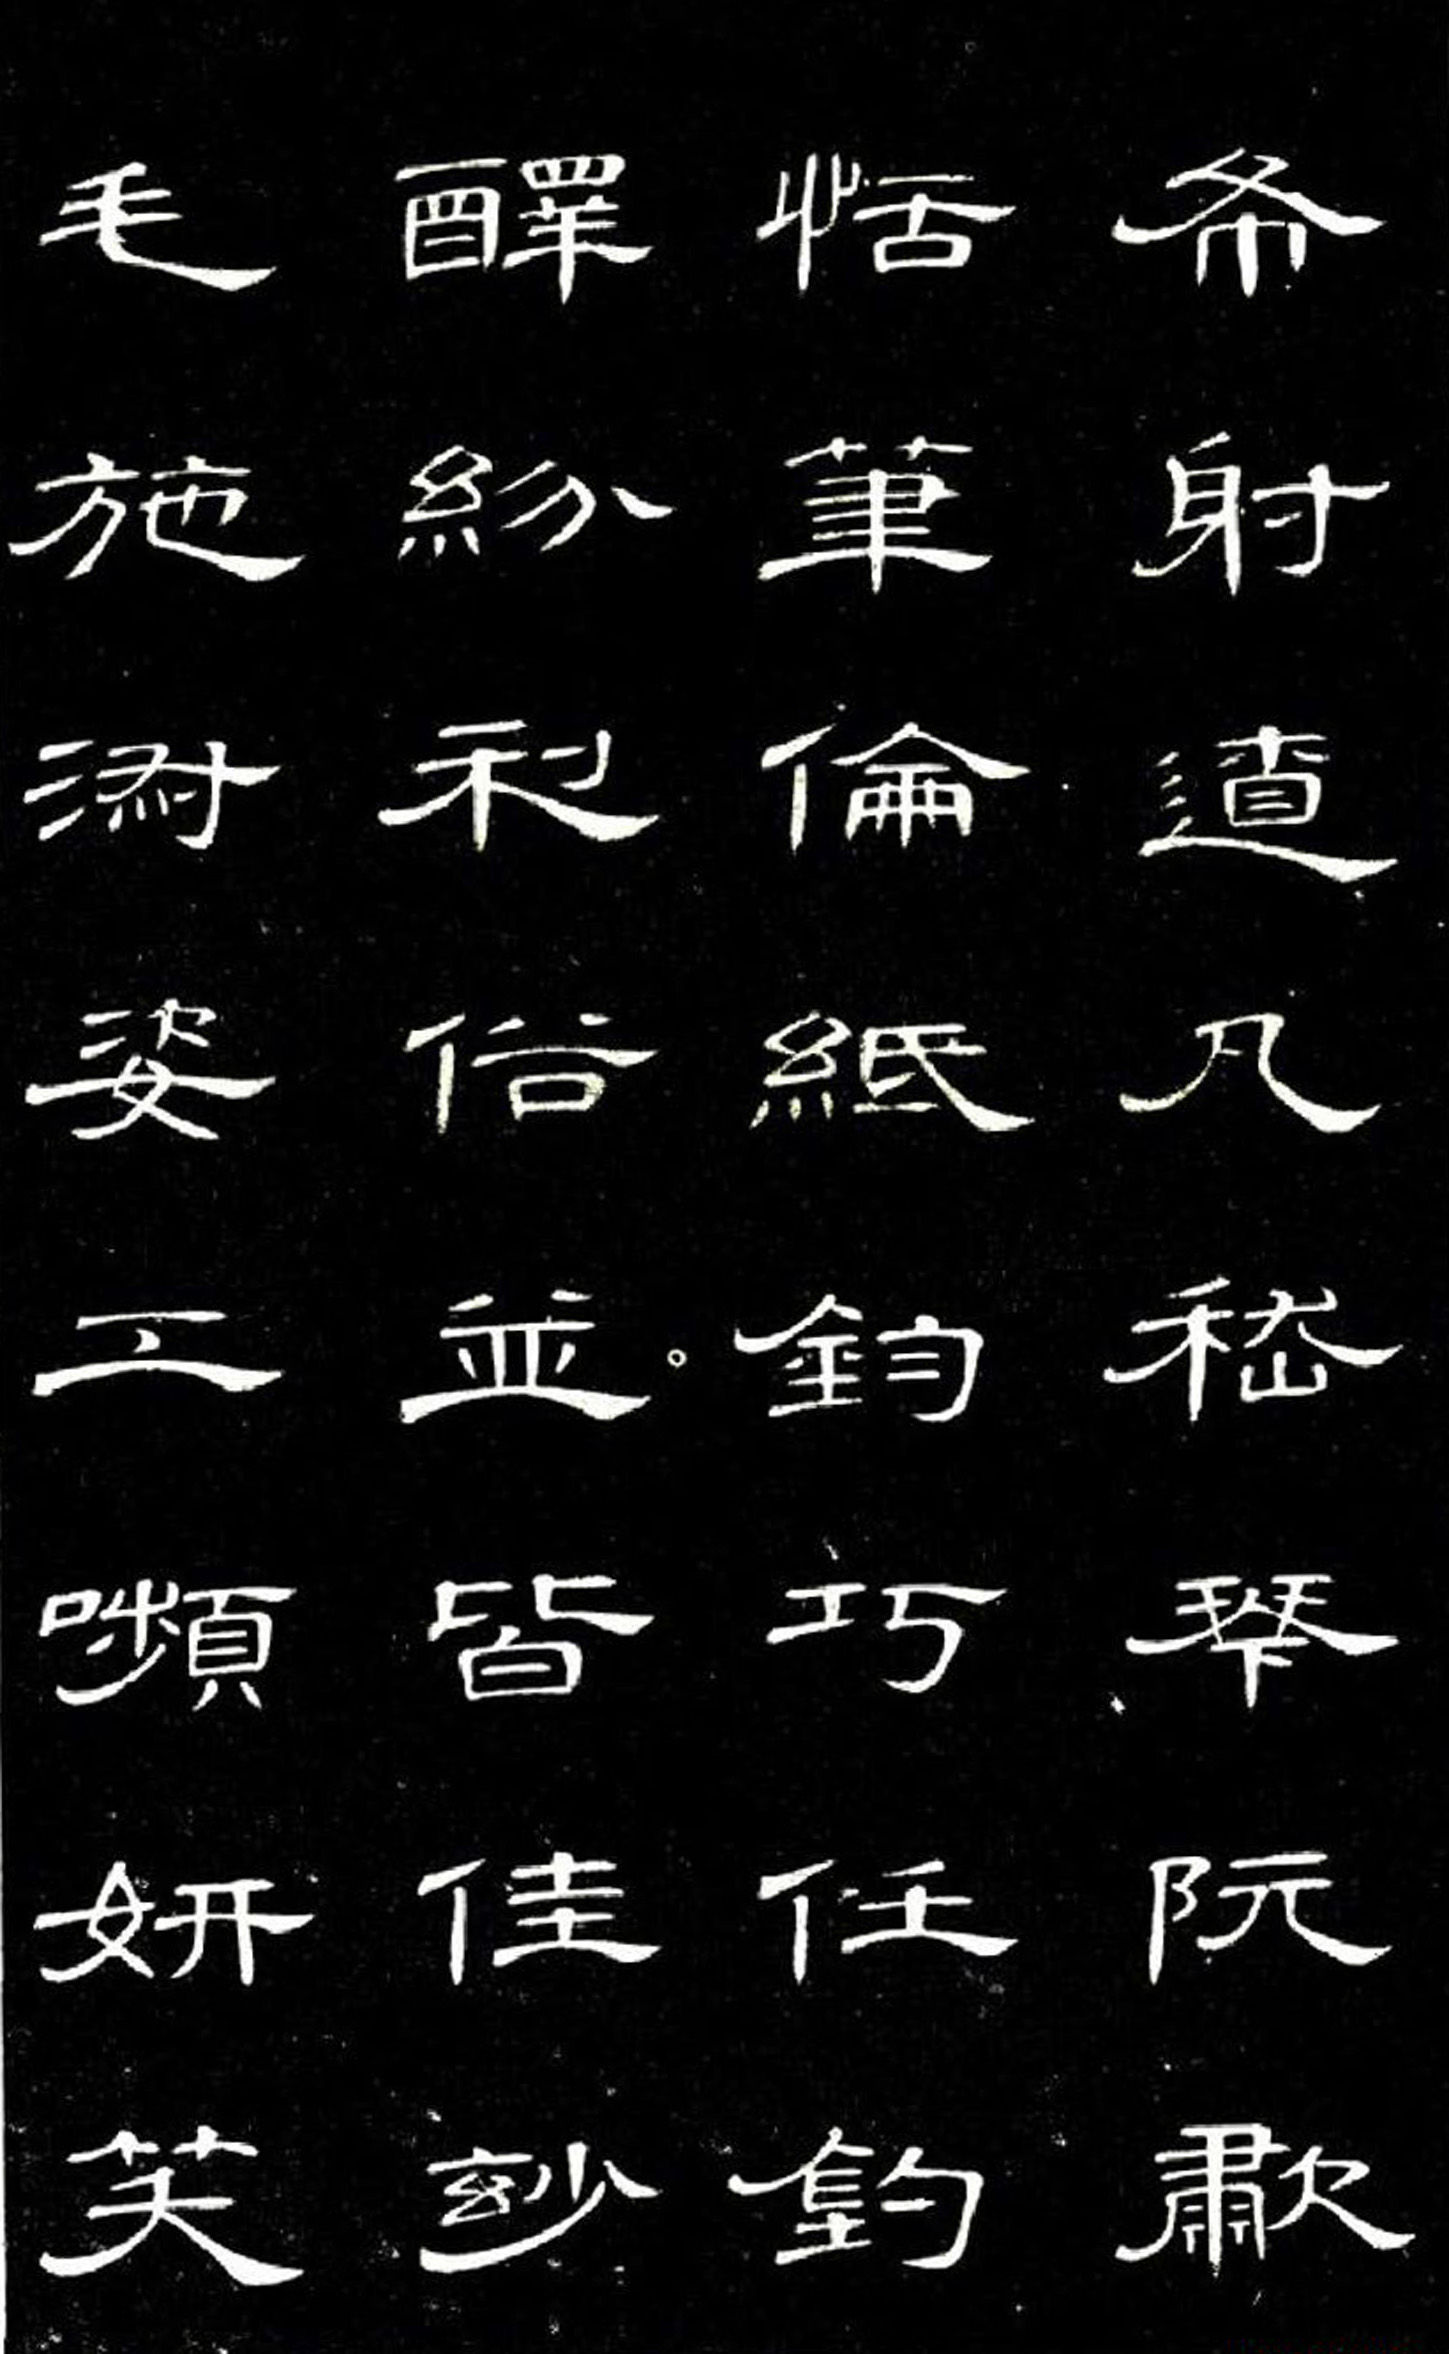 布射遼丸嵇琴阮歗
恬筆倫紙鈞巧任釣
醳紛利俗並皆佳玅
毛施淑姿工嚬妍笑